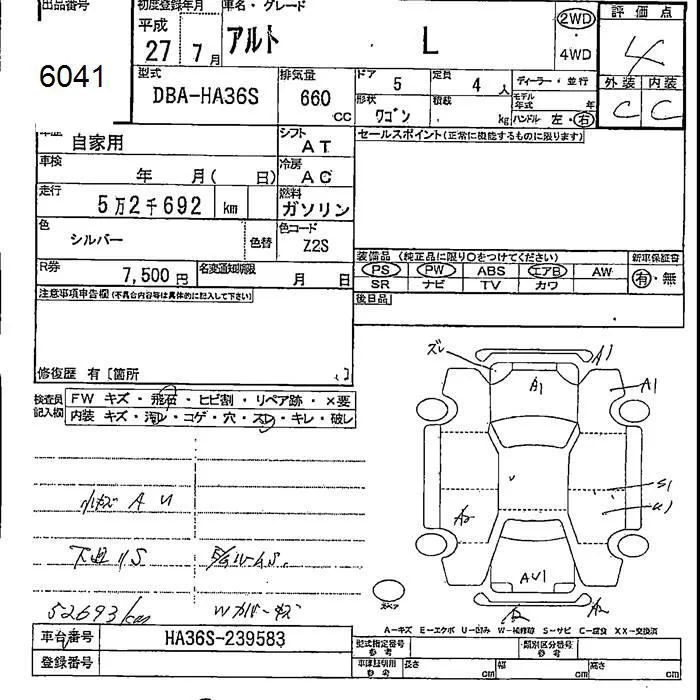 出品番号
6041
初度登録年月
平成
27 7月
車名・グレード
アルト L
2WD
4WD
評価点
4
外装 内装
C C
型式
DBA-HA36S
排気量
660 CC
ドア 5
定員 4 人
ディーラー・並行
形状 ワゴン
積載 kg
モデル年式 年
ハンドル 左・右
自家用
シフト AT
車検 年 月( 日)
冷房 AC
走行 5万2千692 km
燃料 ガソリン
色 シルバー 色替
色コード Z2S
R券 7,500円
名変通知期限 月 日
セールスポイント(正常に機能するものに限ります)
装備品 (純正品に限り○をつけてください)
新車保証書
PS PW ABS エアB AW
有・無
SR ナビ TV カワ
後日品
注意事項申告欄(不具合内容等は具体的に記入して下さい)
修復歴 有〔箇所 〕
検査員記入欄
FW キズ・飛石・ヒビ割・リペア跡・×要
内装 キズ・汚レ・コゲ・穴・スレ・キレ・破レ
小キズ A U
下廻りS
52693km
Wカバーキズ
ズレ
A1
A1
A1
S1
U1
A2
AU1
A
A
スペア
A-キズ E-エクボ U-凹み W-補修跡 S-サビ C-腐食 XX-交換済
車台番号 HA36S-239583
登録番号
型式指定番号 参考
類別区分番号 参考
車庫証明用 参考
長さ cm 幅 cm 高さ cm